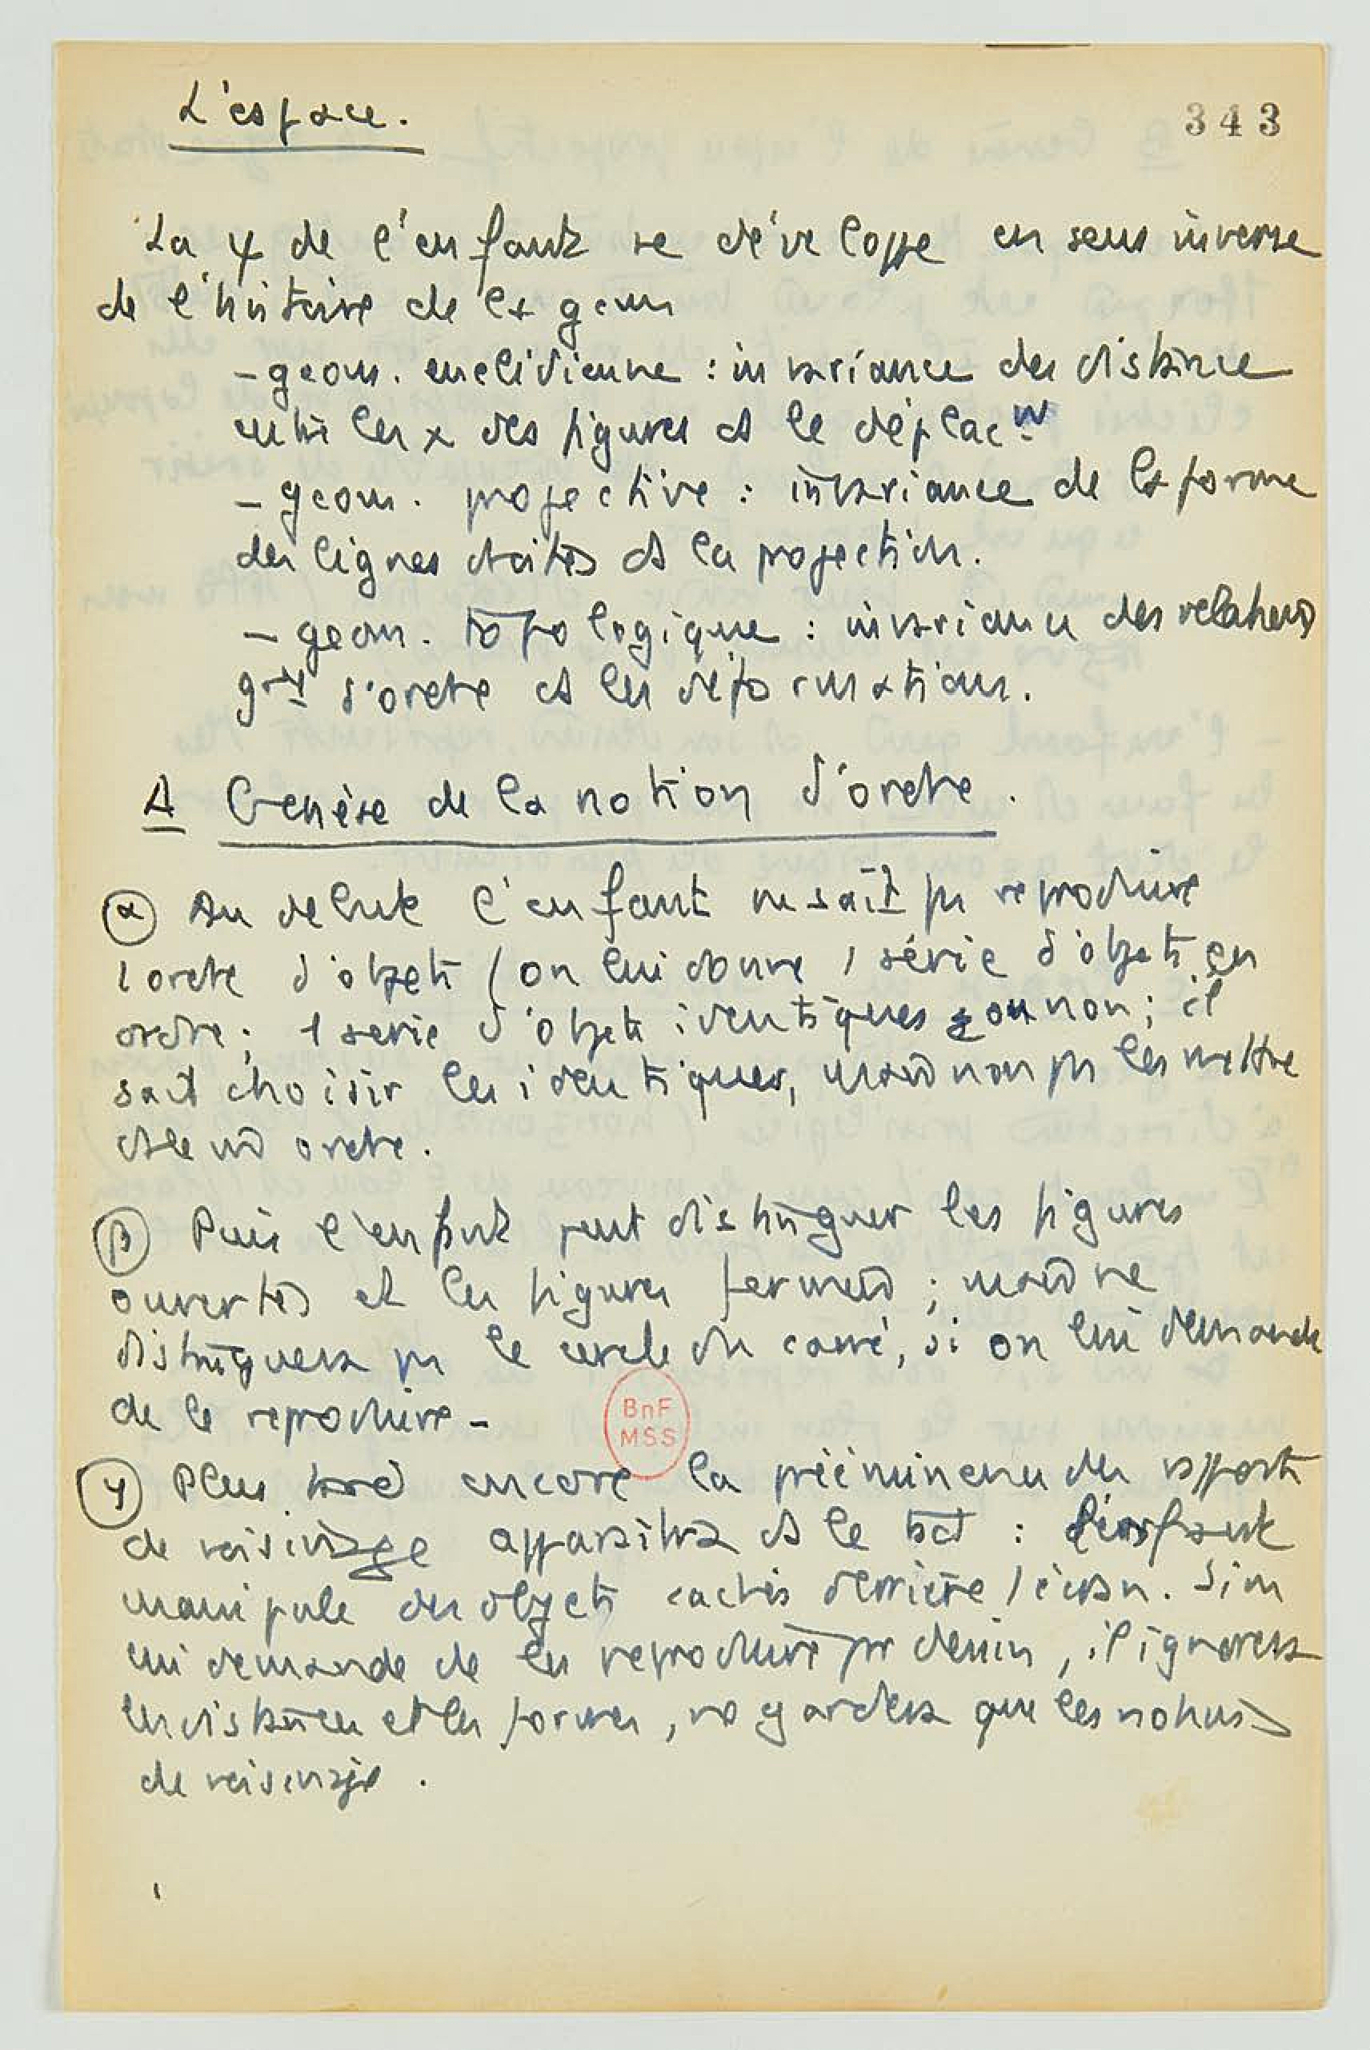 L'espace.
343
La ψ de l'enfant se développe en sens inverse
de l'histoire de la geom
- geom. euclidienne : invariance des distance
entre les x des figures ds le déplact
- geom. projective : invariance de la forme
des lignes droites ds la projection.
- geom. topologique : invariance des relations
gales d'ordre ds les déformations.
A Genèse de la notion d'ordre.
α Au debut l'enfant ne sait pas reproduire
1 ordre d'objets (on lui donne 1 série d'objets en
ordre ; 1 serie d'objets identiques ou non ; il
sait choisir les identiques, mais non pas les mettre
ds le m ordre.
β Puis l'enfant peut distinguer les figures
ouvertes et les figures fermées ; mais ne
distinguera pas le cercle du carré, si on lui demande
de le reproduire -
BnF
MSS
γ Plus tard encore la prééminence des rapports
de voisinage apparaîtra ds le tact : l'enfant
manipule des objets cachés derrière 1 écran. Si on
lui demande de les reproduire par dessin, il ignorera
les distances et les formes, ne gardera que les notions
de voisinage.